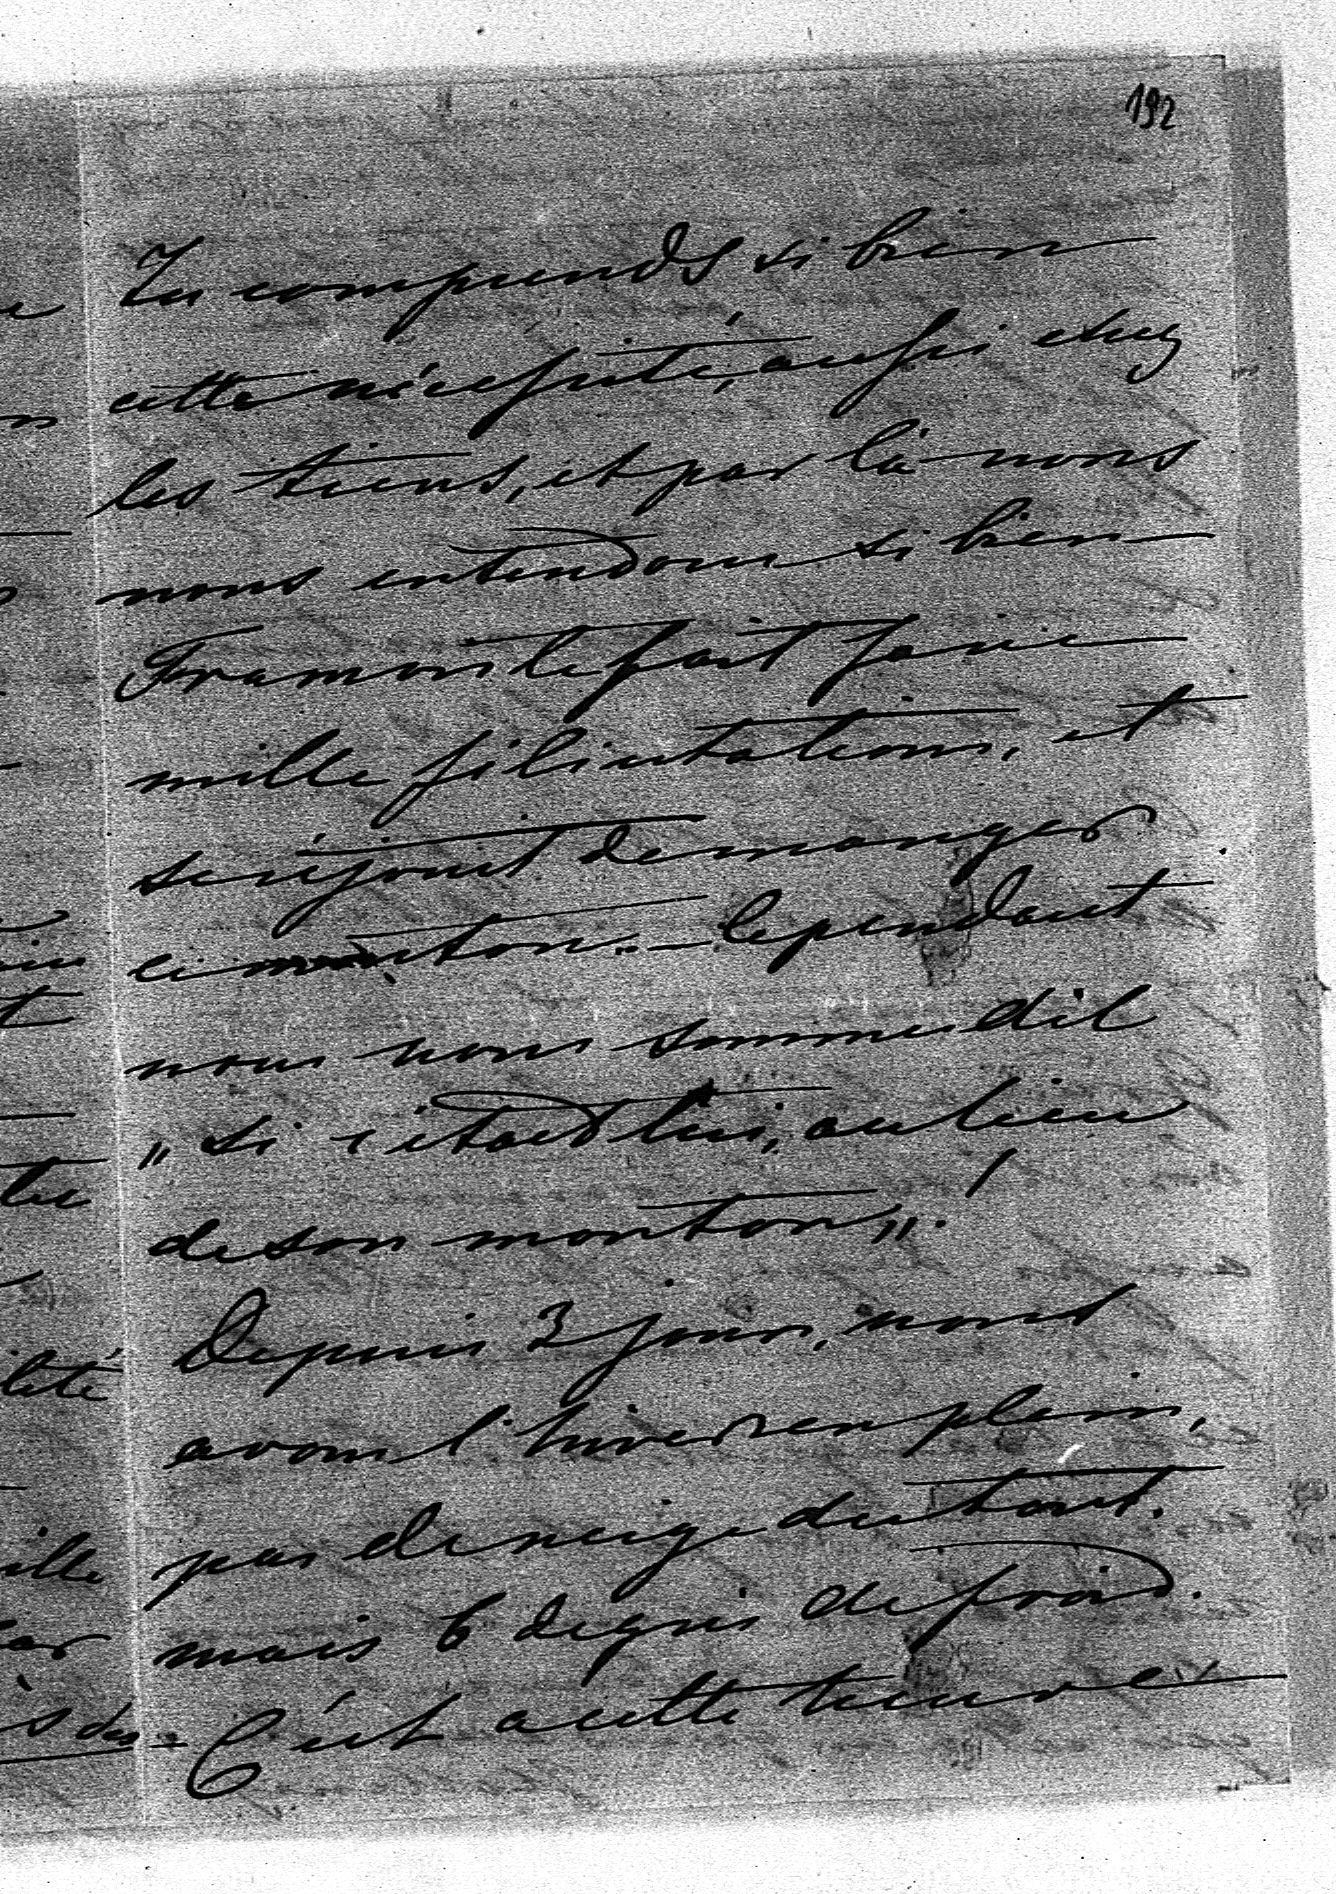 192
Tu comprends si bien
cette nécessité, aussi chez
les tiens, et par là nous
nous entendons si bien
Framont le fait faire
mille félicitations, et
se réjouit de manger
ce mouton. — Cependant
nous nous sommes dit
„ si c'était lui, au lieu
de son mouton „!
Depuis 3 jours, nous
avons l'hiver en plein,
pas de neige du tout.
mais 6 degrés de froid.
C'est a cette heure